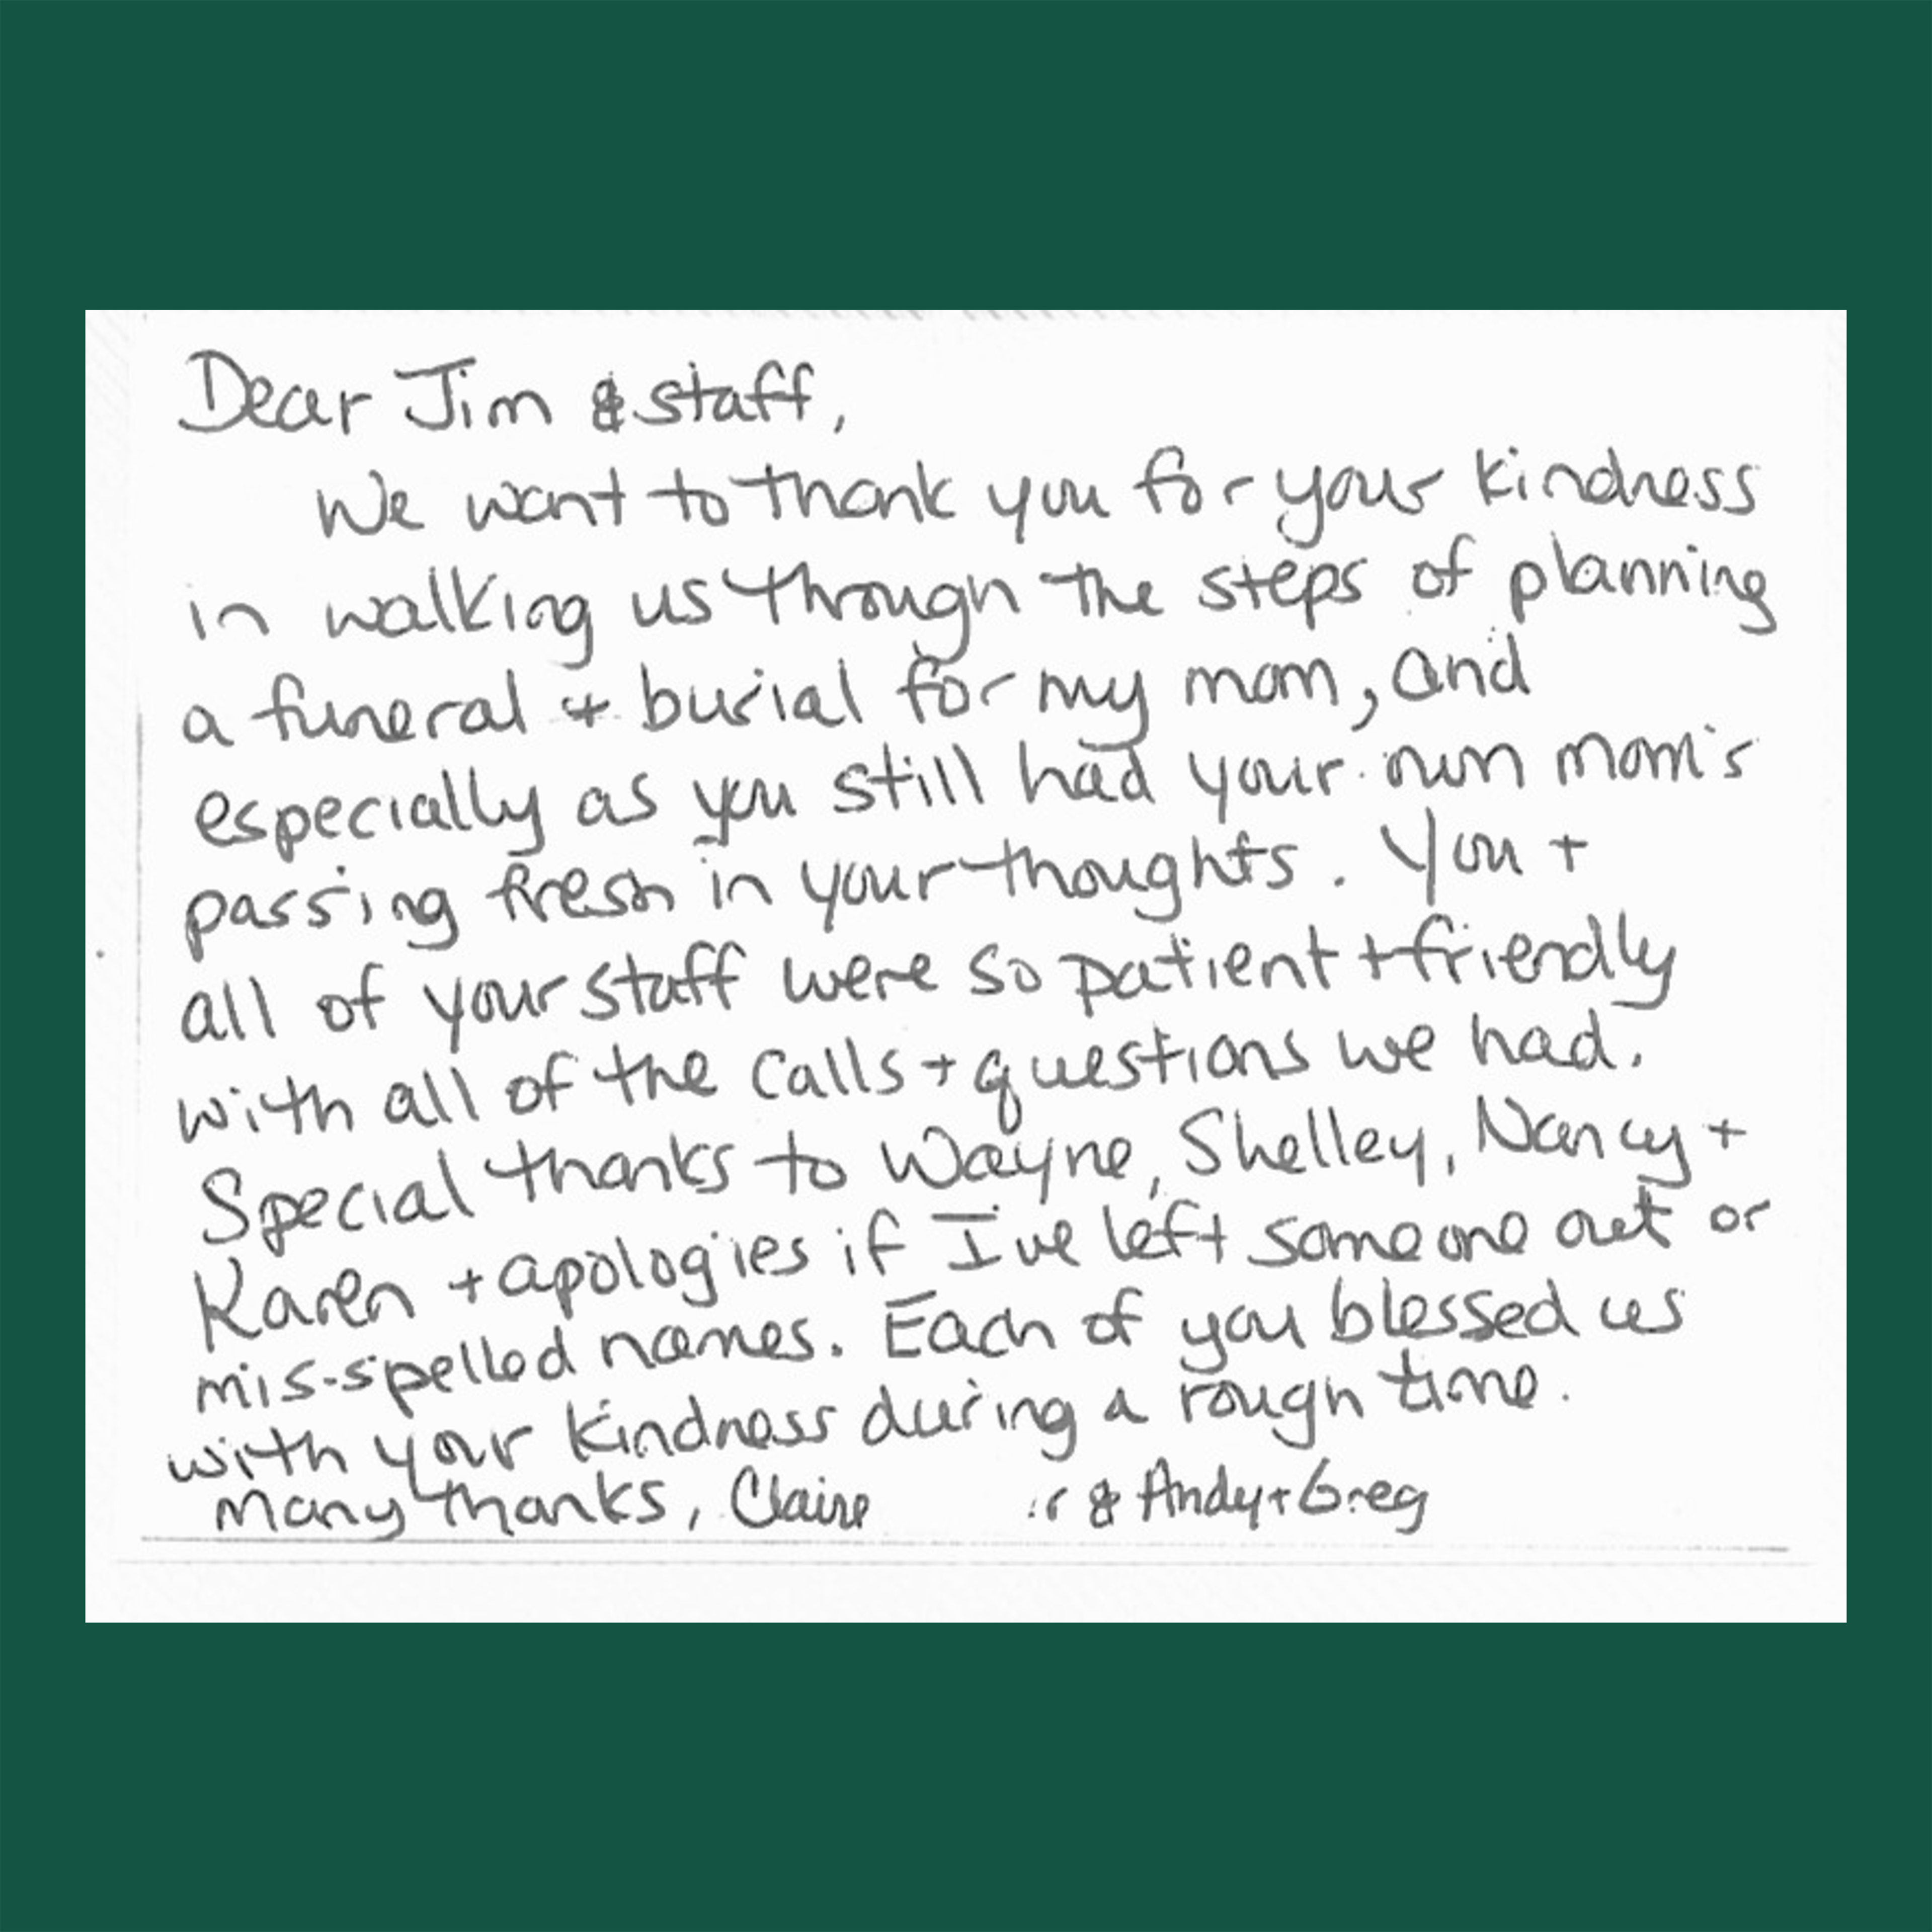 Dear Jim & staff,
We want to thank you for your kindness
in walking us through the steps of planning
a funeral + burial for my mom, and
especially as you still had your own mom's
passing fresh in your thoughts. You +
all of your staff were so patient + friendly
with all of the calls + questions we had.
Special thanks to Wayne, Shelley, Nancy +
Karen + apologies if I've left someone out or
mis-spelled names. Each of you blessed us
with your kindness during a rough time.
Many thanks, Claire & Andy + Greg